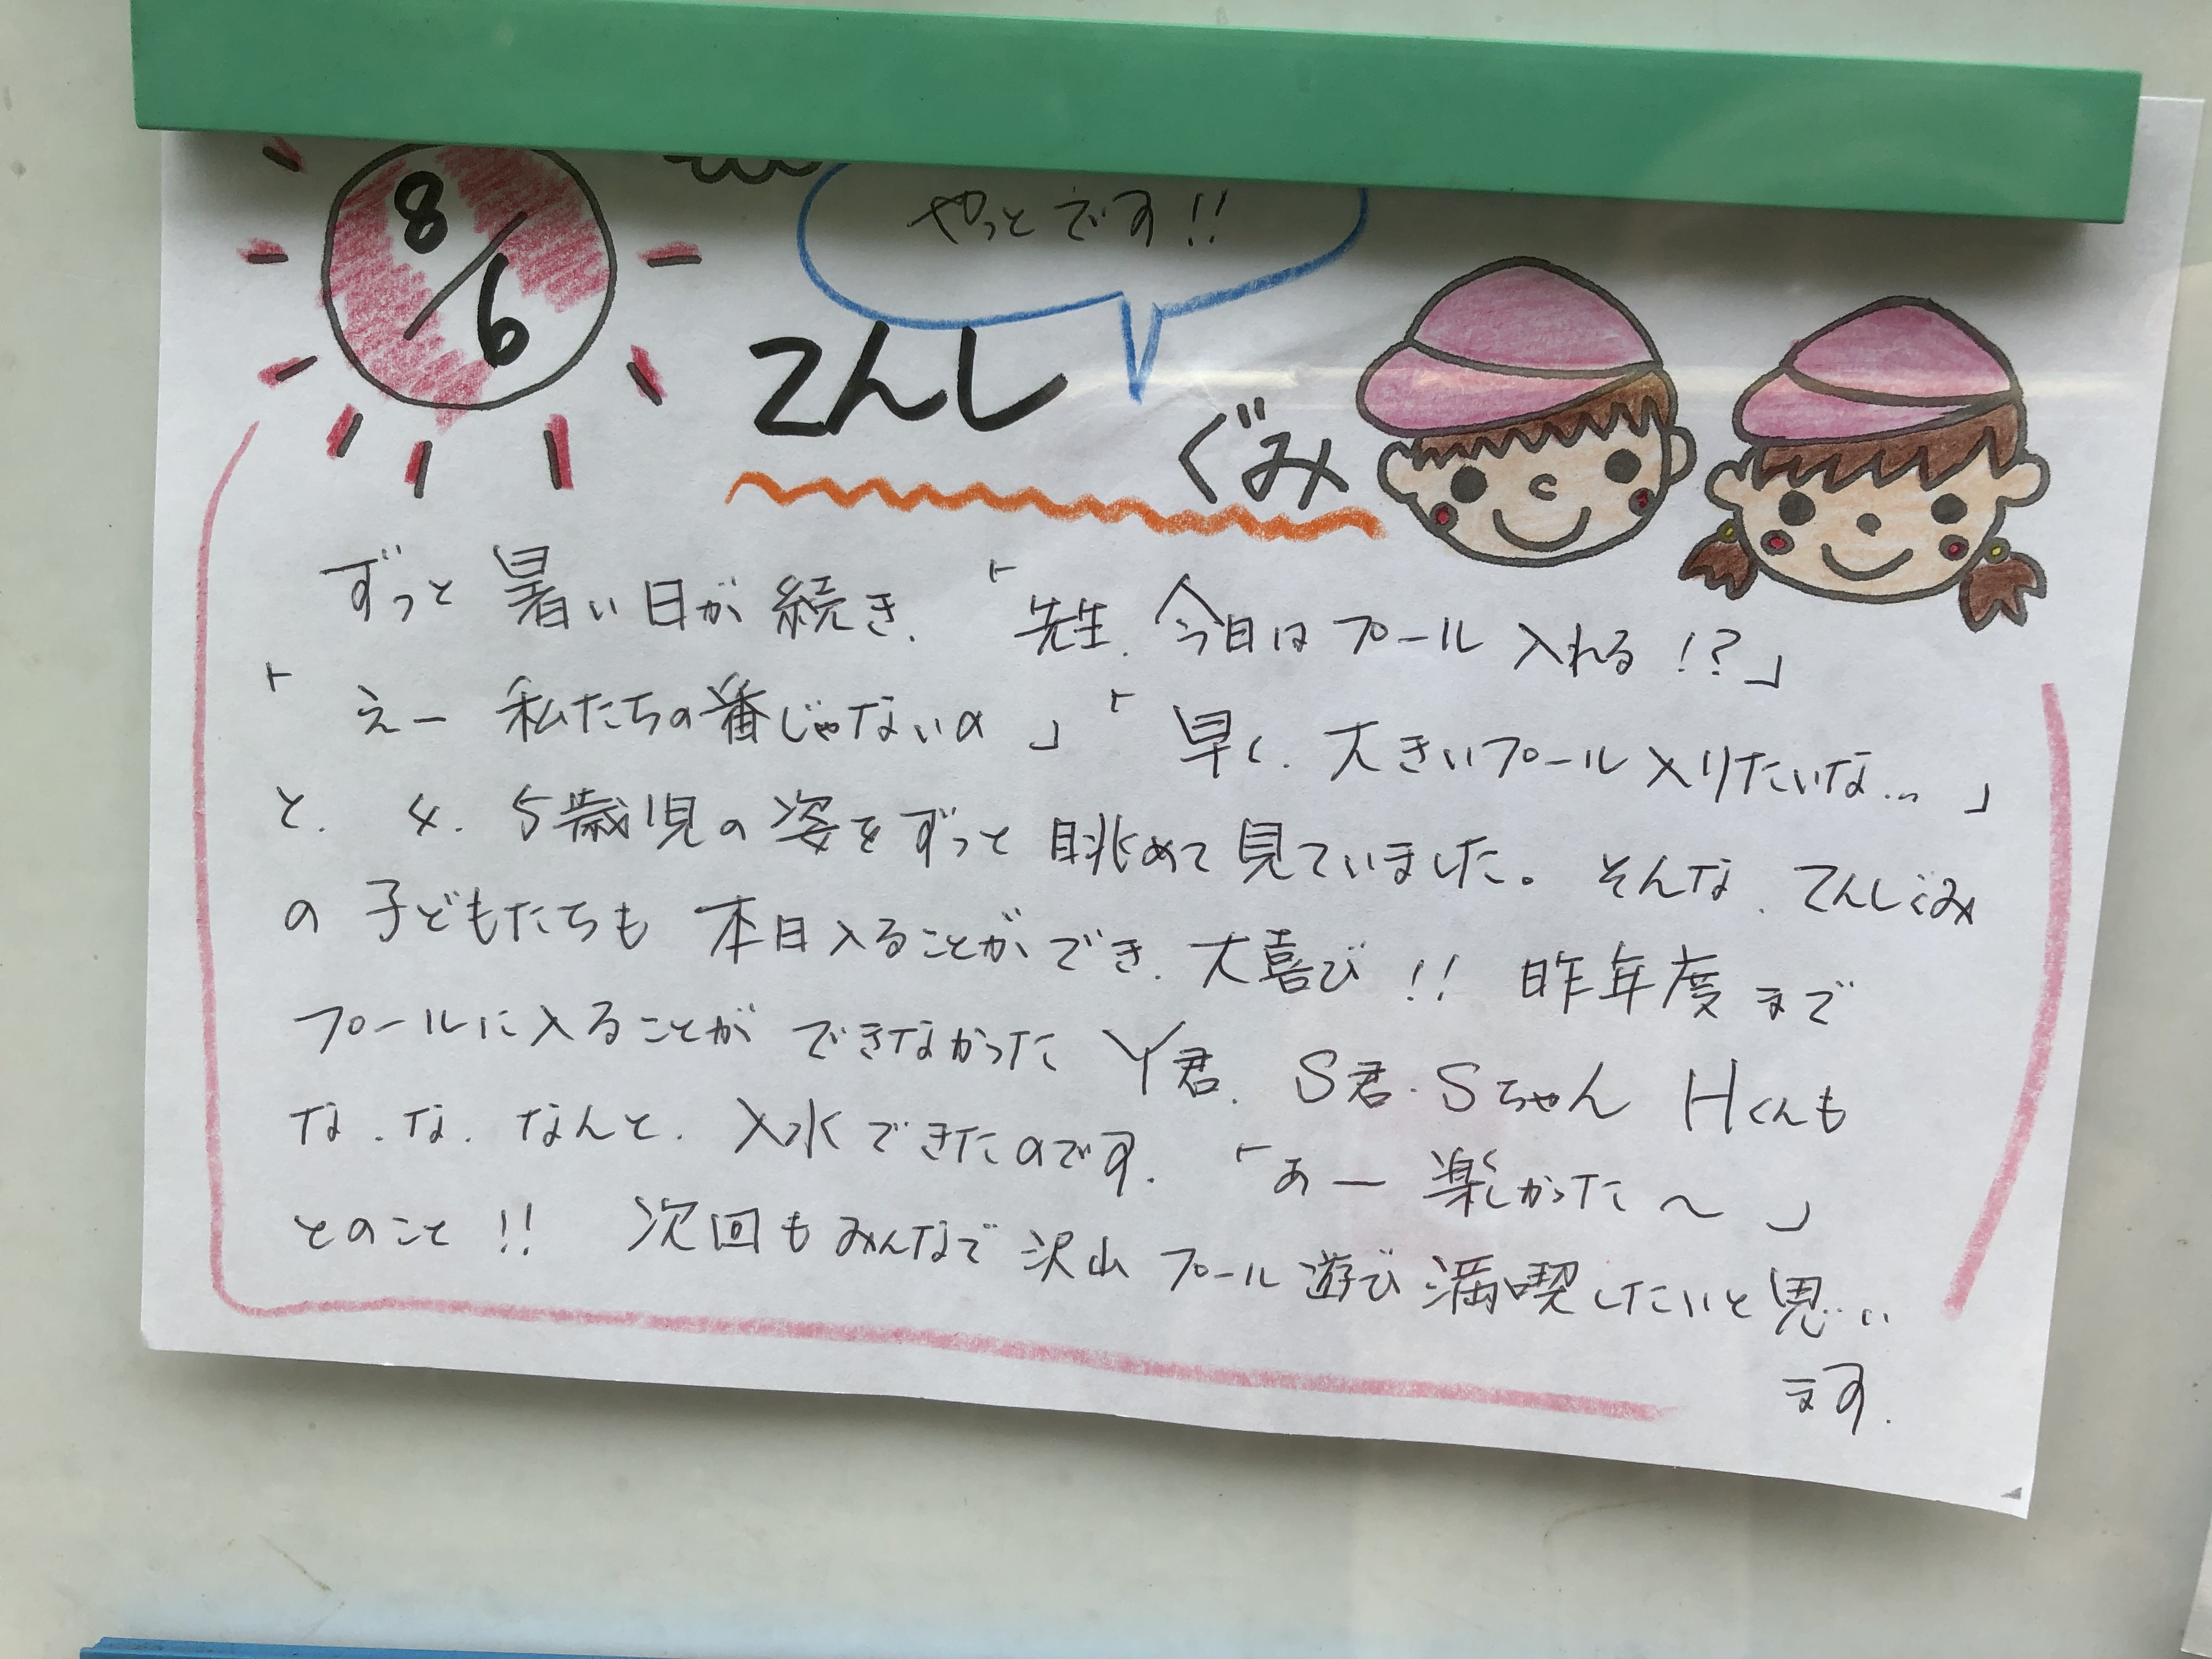 8/6
やっとです!!
てんし
ぐみ
ずっと暑い日が続き、「先生、今日はプール入れる!?」
「えー私たちの番じゃないの」「早く、大きいプール入りたいな…」
と、4、5歳児の姿をずっと眺めて見ていました。そんな、てんしぐみ
の子どもたちも本日入ることができ、大喜び!!昨年度まで
プールに入ることができなかったY君、S君、Sちゃん Hくんも
な、な、なんと、入水できたのです。「あー楽しかった～」
とのこと!!次回もみんなで沢山プール遊び満喫したいと思い
ます。